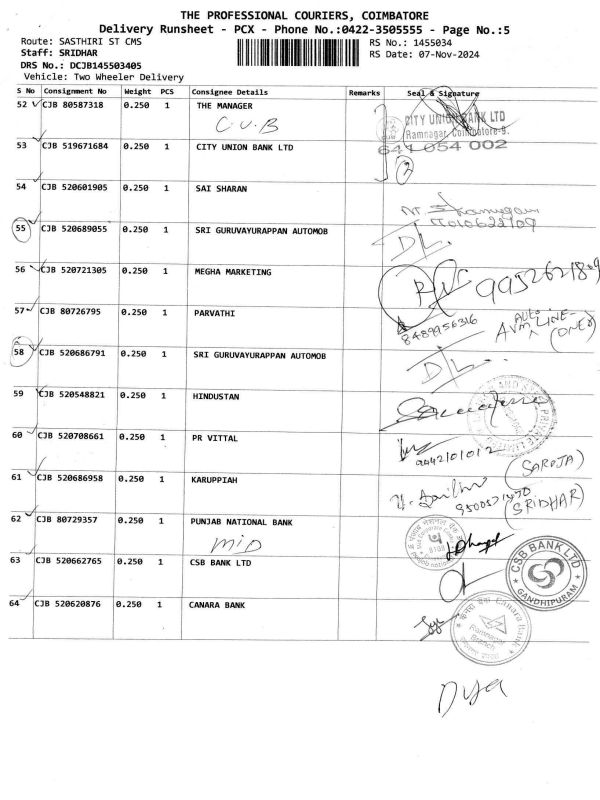 THE PROFESSIONAL COURIERS, COIMBATORE
Delivery Runsheet - PCX - Phone No.:0422-3505555 - Page No.:5
Route: SASTHIRI ST CMS
RS No.: 1455034
Staff: SRIDHAR
RS Date: 07-Nov-2024
DRS No.: DCJB145503405
Vehicle: Two Wheeler Delivery
S No Consignment No Weight PCS Consignee Details Remarks Seal & Signature
52 CJB 80587318 0.250 1 THE MANAGER
C.U.B
CITY UNION BANK LTD
Ramnagar, Coimbatore-9.
53 CJB 519671684 0.250 1 CITY UNION BANK LTD
641 054 002
2
54 CJB 520601905 0.250 1 SAI SHARAN
55 CJB 520689055 0.250 1 SRI GURUVAYURAPPAN AUTOMOB
DL.
56 CJB 520721305 0.250 1 MEGHA MARKETING
57 CJB 80726795 0.250 1 PARVATHI
8489956316
AVM AUTO LINE-
58 CJB 520686791 0.250 1 SRI GURUVAYURAPPAN AUTOMOB
DL.
59 CJB 520548821 0.250 1 HINDUSTAN
60 CJB 520708661 0.250 1 PR VITTAL
9442101012
(SAROJA)
61 CJB 520686958 0.250 1 KARUPPIAH
(SRIDHAR)
62 CJB 80729357 0.250 1 PUNJAB NATIONAL BANK
MID
63 CJB 520662765 0.250 1 CSB BANK LTD
CSB BANK LTD
GANDHIPURAM
64 CJB 520620876 0.250 1 CANARA BANK
Canara Bank
Ramnagar
Branch